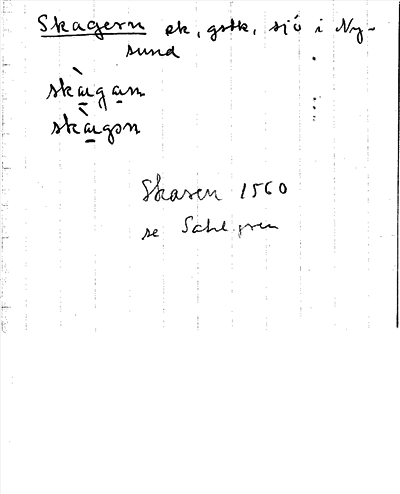 Skagern ek, gstk, sjö i Ny-
sund
skàgan
skàgən
Skaren 1560
se Sahlgren